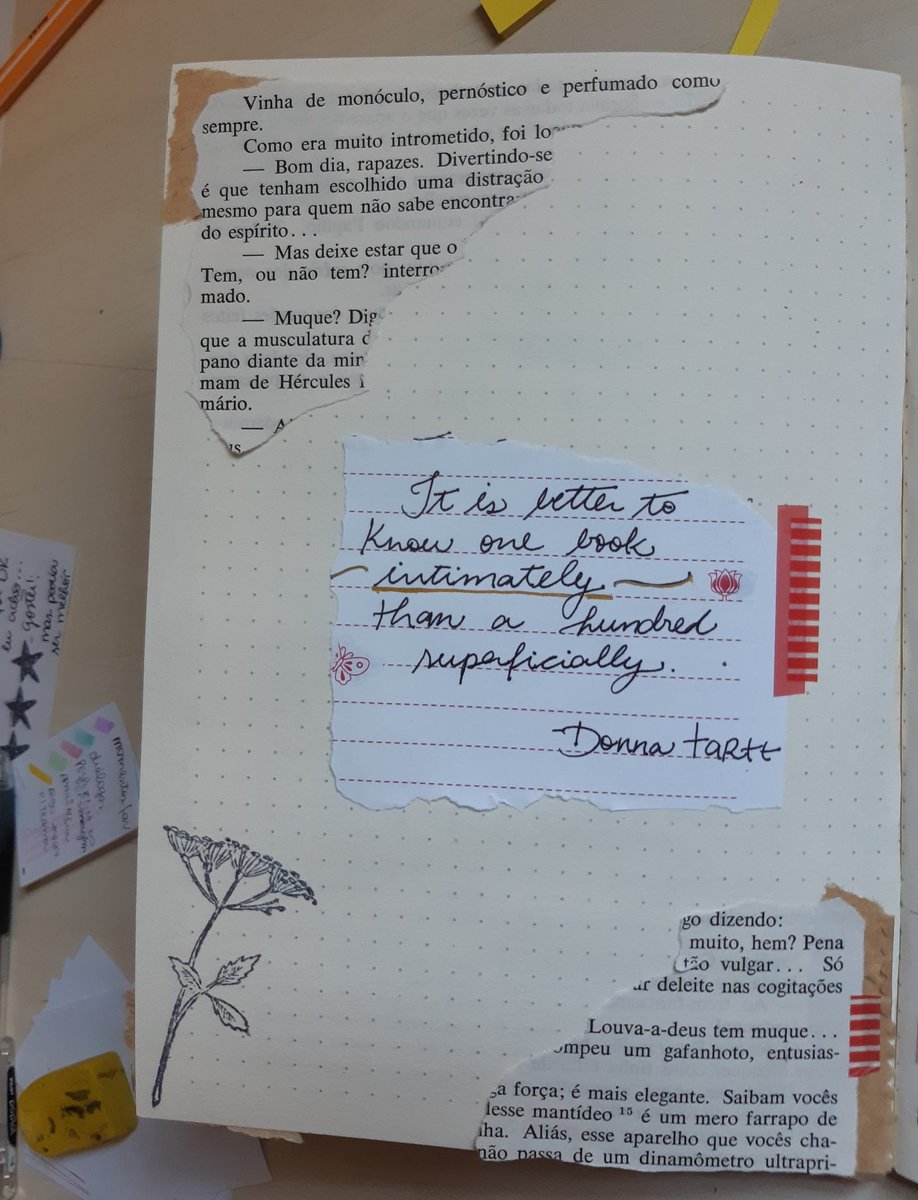 Vinha de monóculo, pernóstico e perfumado como
sempre.
Como era muito intrometido, foi
— Bom dia, rapazes. Divertindo-se
é que tenham escolhido uma distração
mesmo para quem não sabe
do espírito...
— Mas deixe estar que o
Tem, ou não tem?
mado.
— Muque?
que a musculatura
pano diante da
mam de Hércules
mário.
—
It is better to
know one book
intimately
than a hundred
superficially.
Donna Tartt
go dizendo:
muito, hem? Pena
tão vulgar... Só
deleite nas cogitações
Louva-a-deus tem muque...
um gafanhoto, entusias-
força; é mais elegante. Saibam vocês
desse mantídeo 15 é um mero farrapo de
Aliás, esse aparelho que vocês cha-
não passa de um dinamômetro ultrapri-
eu acho...
gostei!
mas podia
ser melhor